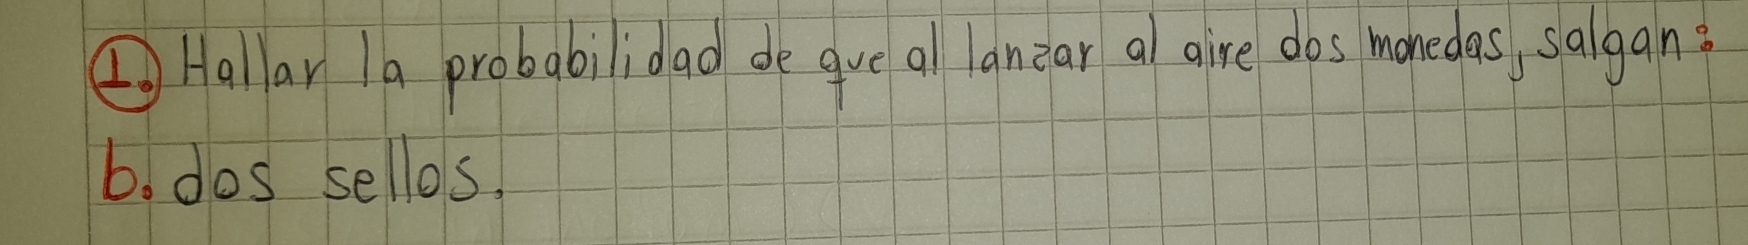 1. Hallar la probabilidad de que al lanzar al aire dos monedas, salgan:
b. dos sellos.